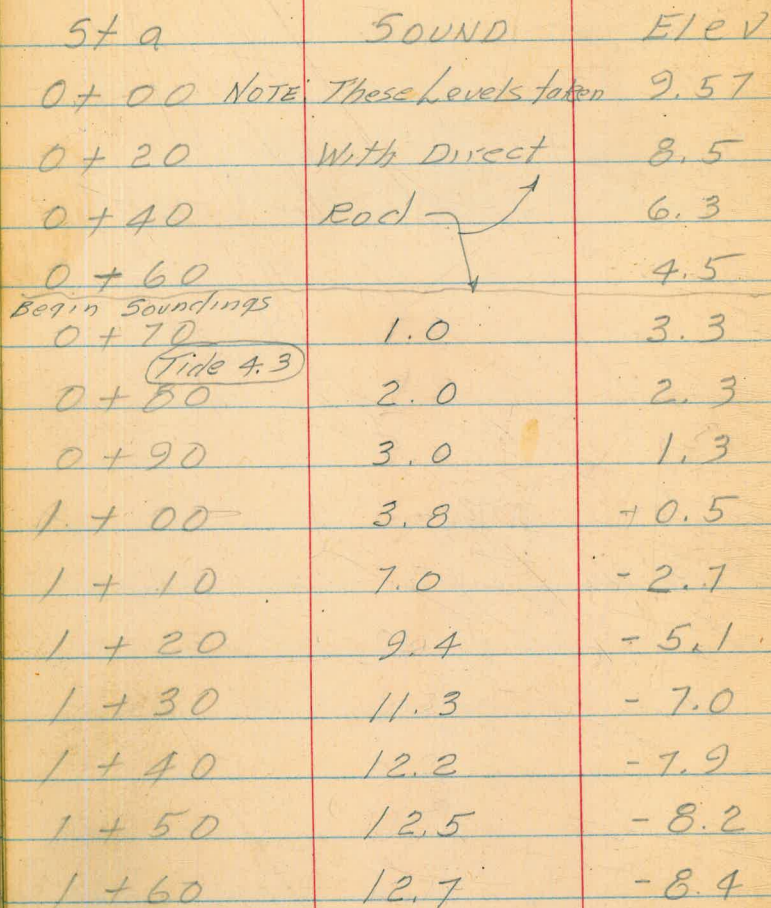 Sta SOUND Elev
0+00 NOTE: These Levels taken 9.57
0+20 With Direct 8.5
0+40 Rod 6.3
0+60 4.5
Begin Soundings
0+70 1.0 3.3
Tide 4.3
0+80 2.0 2.3
0+90 3.0 1.3
1+00 3.8 +0.5
1+10 7.0 -2.7
1+20 9.4 -5.1
1+30 11.3 -7.0
1+40 12.2 -7.9
1+50 12.5 -8.2
1+60 12.7 -8.4